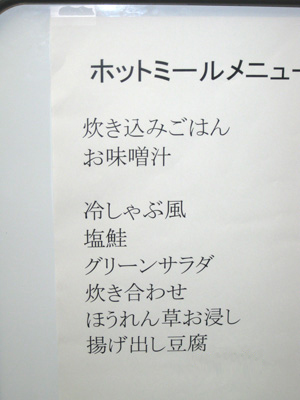 ホットミールメニュー
炊き込みごはん
お味噌汁
冷しゃぶ風
塩鮭
グリーンサラダ
炊き合わせ
ほうれん草お浸し
揚げ出し豆腐